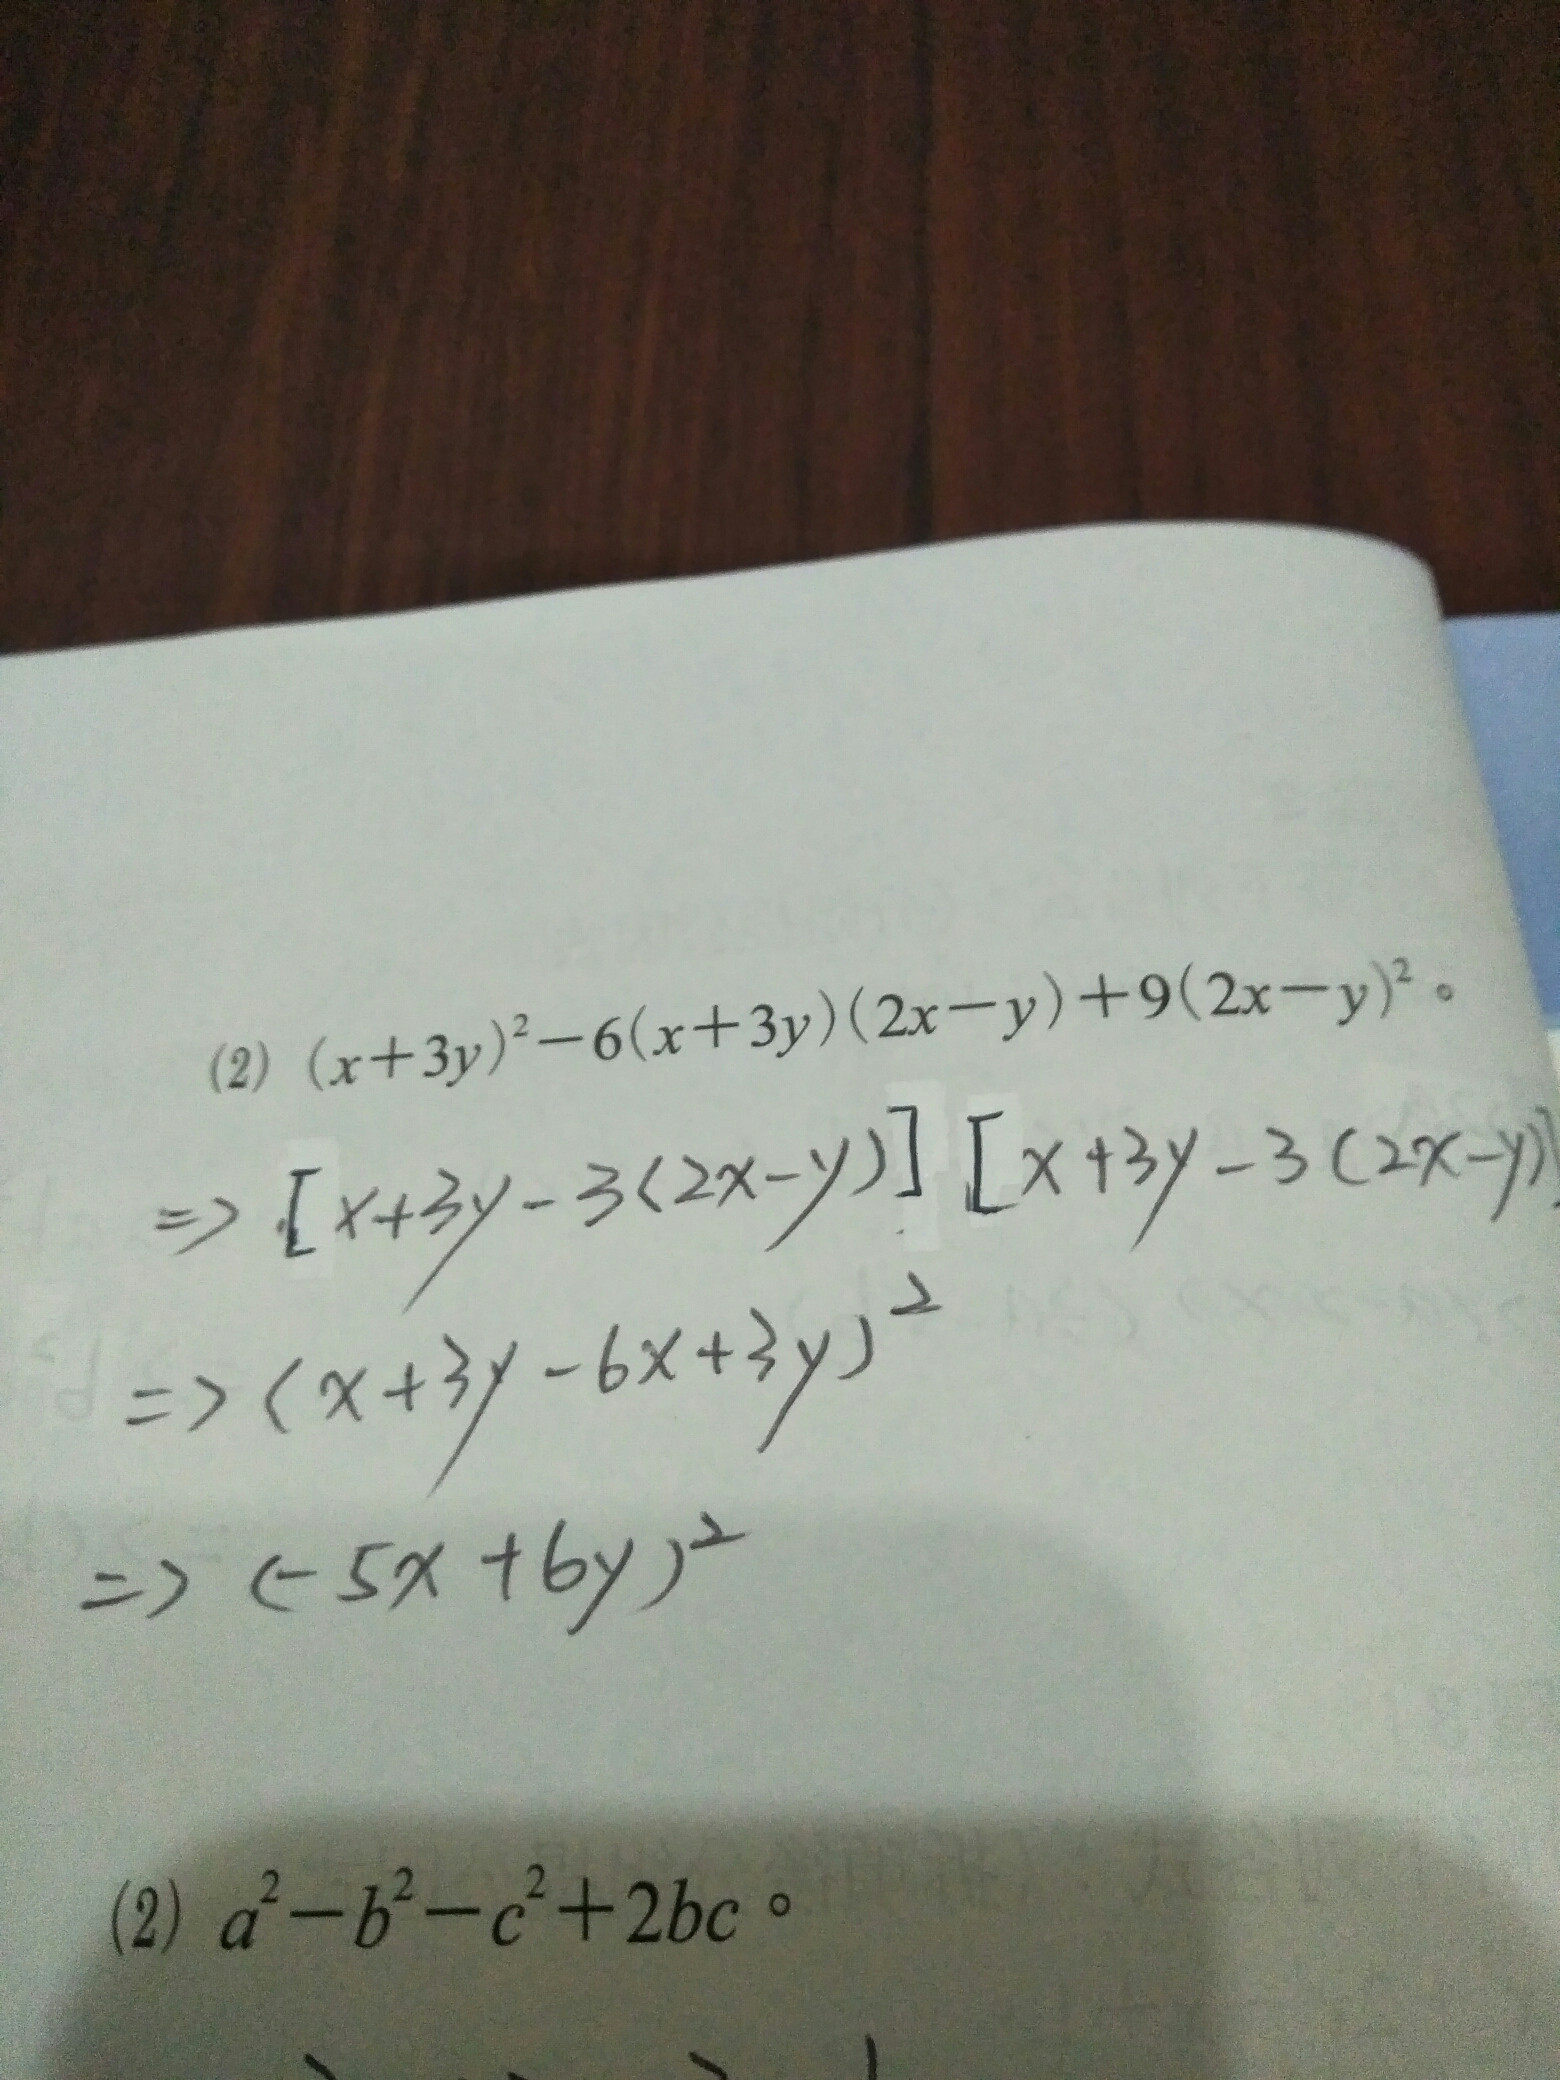 (2) (x+3y)²−6(x+3y)(2x−y)+9(2x−y)²。
=> [x+3y-3(2x-y)] [x+3y-3(2x-y)]
=> (x+3y-6x+3y)²
=> (-5x+6y)²
(2) a²−b²−c²+2bc。